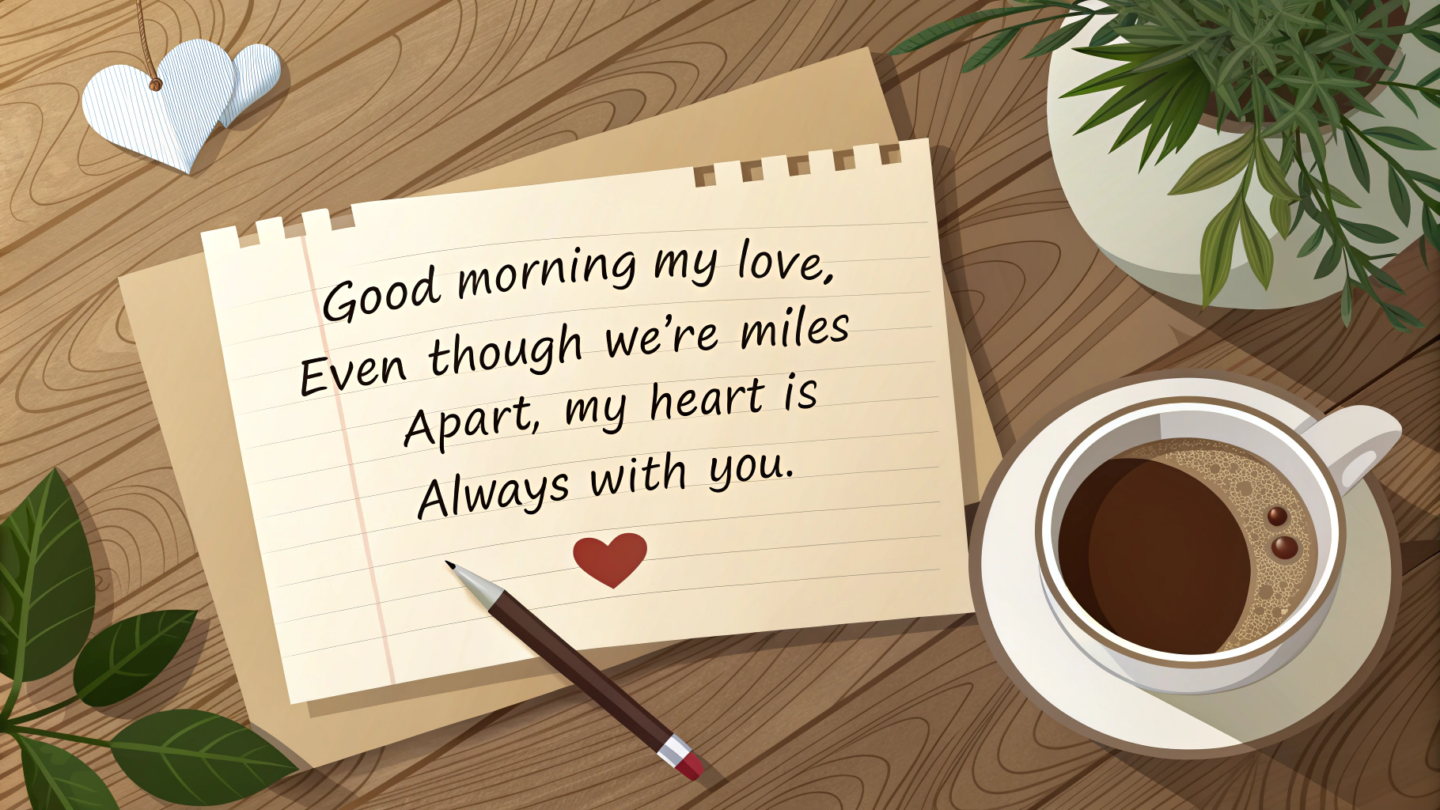 Good morning my love,
Even though we're miles
Apart, my heart is
Always with you.